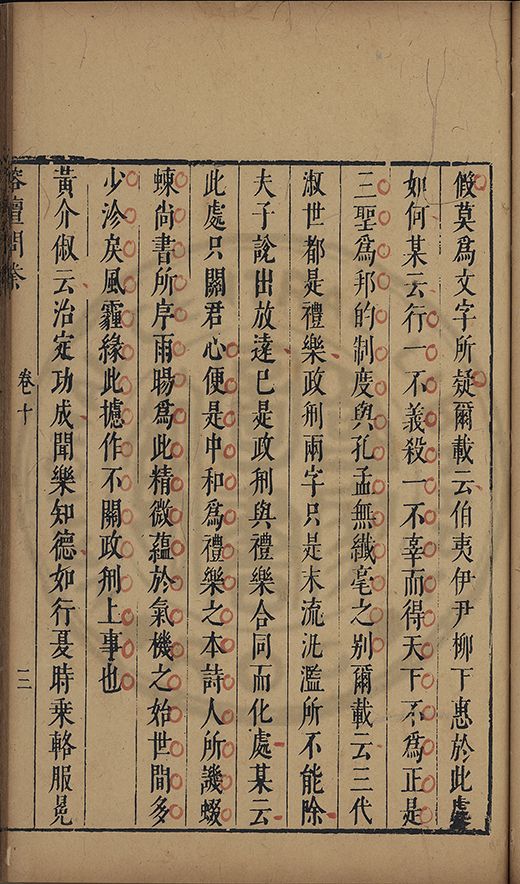 假莫爲文字所疑爾載云伯夷伊尹柳下惠於此處
如何某云行一不義殺一不辜而得天下不爲正是
三聖爲邦的制度與孔孟無纖毫之别爾載云三代
淑世都是禮樂政刑兩字只是末流汎濫所不能除
夫子說出放達已是政刑與禮樂合同而化處某云
此處只關君心便是中和爲禮樂之本詩人所譏蝃
蝀尚書所序雨暘爲此精微蘊於氣機之始世間多
少沴戾風霾緣此攄作不關政刑上事也
黃介俶云治定功成聞樂知德如行夏時乘輅服冕
榕壇問業
卷十
三